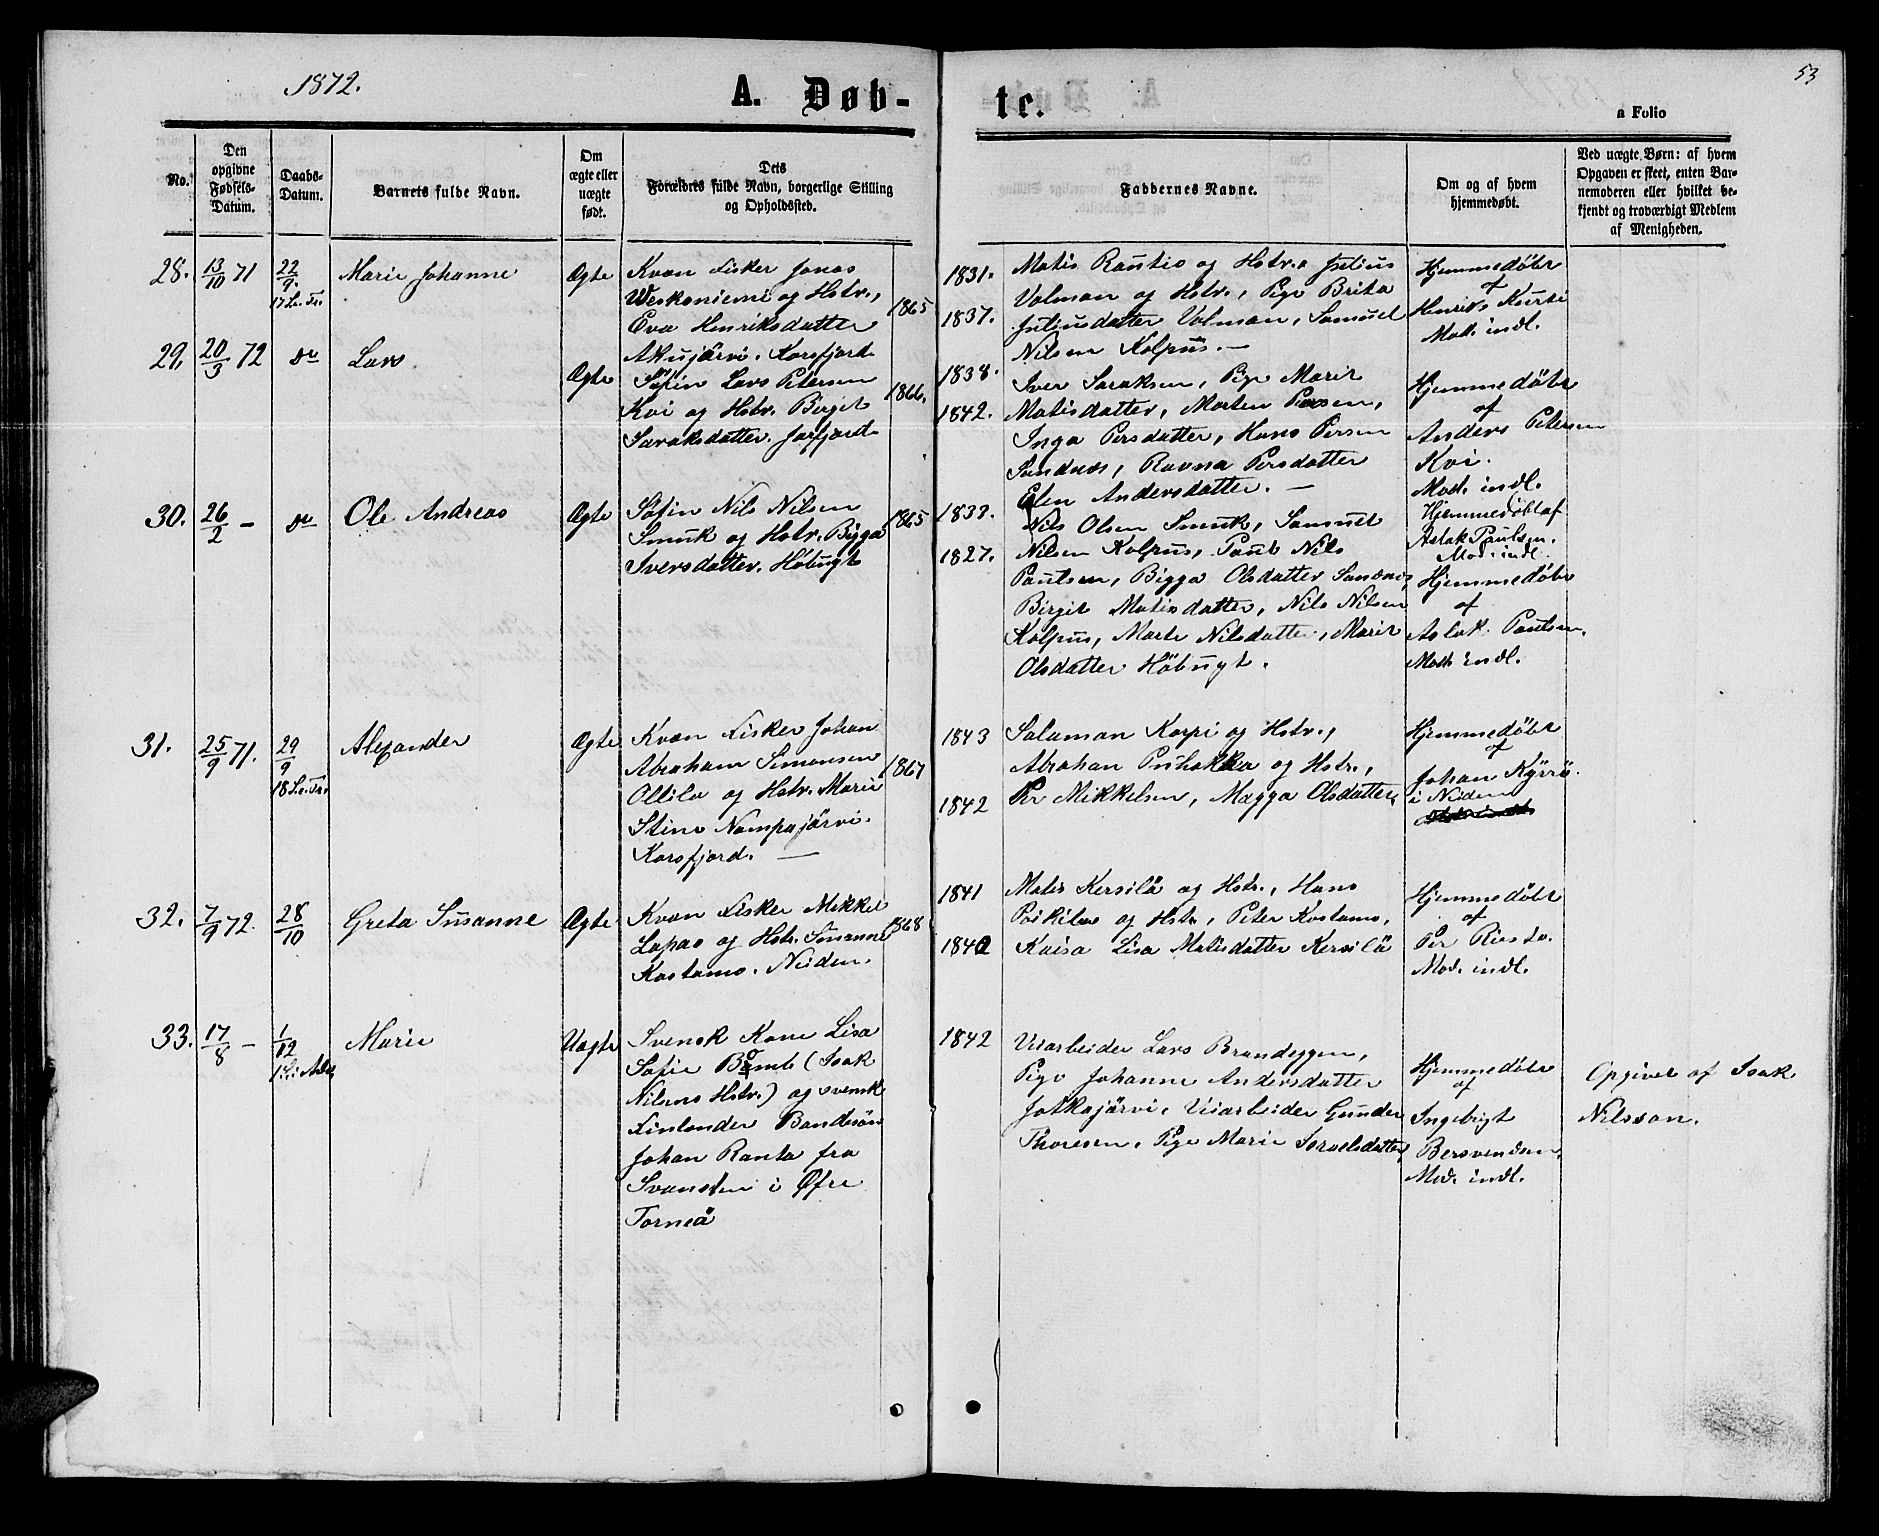 1872.
A. Døb-
te.
53
a Folio
No.
Den
opgivne
Fødsels-
Datum.
Daabs-
Datum.
Barnets fulde Navn.
Om
ægte eller
uægte
født.
Dets
Forældres fulde Navn, borgerlige Stilling
og Opholdssted.
Faddernes Navne.
Om og af hvem
hjemmedøbt.
Ved uægte Børn: af hvem
Opgaven er skeet, enten Bar-
nemoderen eller hvilket be-
kjendt og troværdigt Medlem
af Menigheden.
28. 13/10 71 22/9. Marie Johanne Ægte
17 S. e. Tr.
Kvæn Fisker Jonas
Weskaniemi og Hstr.,
Eva Henriksdatter
Akujärvi. Korsfjord
1865
1831.
1837.
Matis Rautio og Hstr., Julius
Volman og Hstr., Pige Brita
Juliusdatter Volman, Samuel
Nilsen Kolpus. —
Hjemmedøbt
af
Henrik Kurti
Mod. indl.
29. 20/3 72 do Lars. Ægte
Søfin Lars Petersen
Kvi og Hstr. Birget
Saraksdatter. Jarfjord
1866.
1838.
1842.
Iver Saraksen, Pige Marit
Matisdatter, Morten Persen,
Inga Persdatter, Hans Persen
Sandnæs, Ravna Persdatter
Elen Andersdatter. —
Hjemmedøbt
af
Anders Petersen
Kvi.
Mod. indl.
30. 26/2 — do Ole Andreas Ægte
Søfin Nils Nilsen
Smuk og Hstr. Bigga
Iversdatter. Høbugt
1865
1833.
1827.
Nils Olsen Smuk, Samuel
Nilsen Kolpus, Paul Nils
Paulsen, Bigga Olsdatter Sandnæs,
Birgit Matisdatter, Nils Nilsen
Kolpus, Marte Nilsdatter, Marit
Olsdatter Høbugt.
Hjemmedøbt af
Aslak Paulsen.
Mod. indl.
Hjemmedøbt
af
Aslak Paulsen.
Mod. indl.
31. 25/9 71. 29/9 Alexander Ægte
18 S. e. Tr.
Kvæn Fisker Johan
Abraham Simonsen
Ollila og Hstr. Marie
Stine Nampajärvi.
Korsfjord. —
1867
1843
1842
Salaman Karpi og Hstr.,
Abraham Puhakka og Hstr.,
Per Mikkelsen, Magga Olsdatter.
Hjemmedøbt
af
Johan Kyrrö.
i Neiden
32. 7/9 72. 28/10 Greta Susanne Ægte
Kvæn Fisker Mikkel
Lapas og Hstr. Susanne
Kostamo. Neiden.
1868
1841
1840
Matis Kersilä og Hstr., Hans
Poikilas og Hstr., Peter Kostamo,
Kaisa Lisa Matisdatter Kersilä
Hjemmedøbt
af
Per Riesto.
Mod. indl.
33. 17/8 — 1/12 Marie Uægte
1 S. i Adv.
Svensk Kone Lisa
Sofie Bomb (Isak
Nilsens Hstr.) og svensk
Finlænder Bondesøn
Johan Ranta fra
Svansten i Øfre
Torneå
1842
Veiarbeider Lars Brandeggen,
Pige Johanne Andersdatter
Jotkajärvi, Veiarbeider Gunder
Thoresen, Pige Marie Israelsdatter,
Hjemmedøbt
af
Ingebrigt
Bersvendsen.
Mod. indl.
Opgivet af Isak
Nilsson.